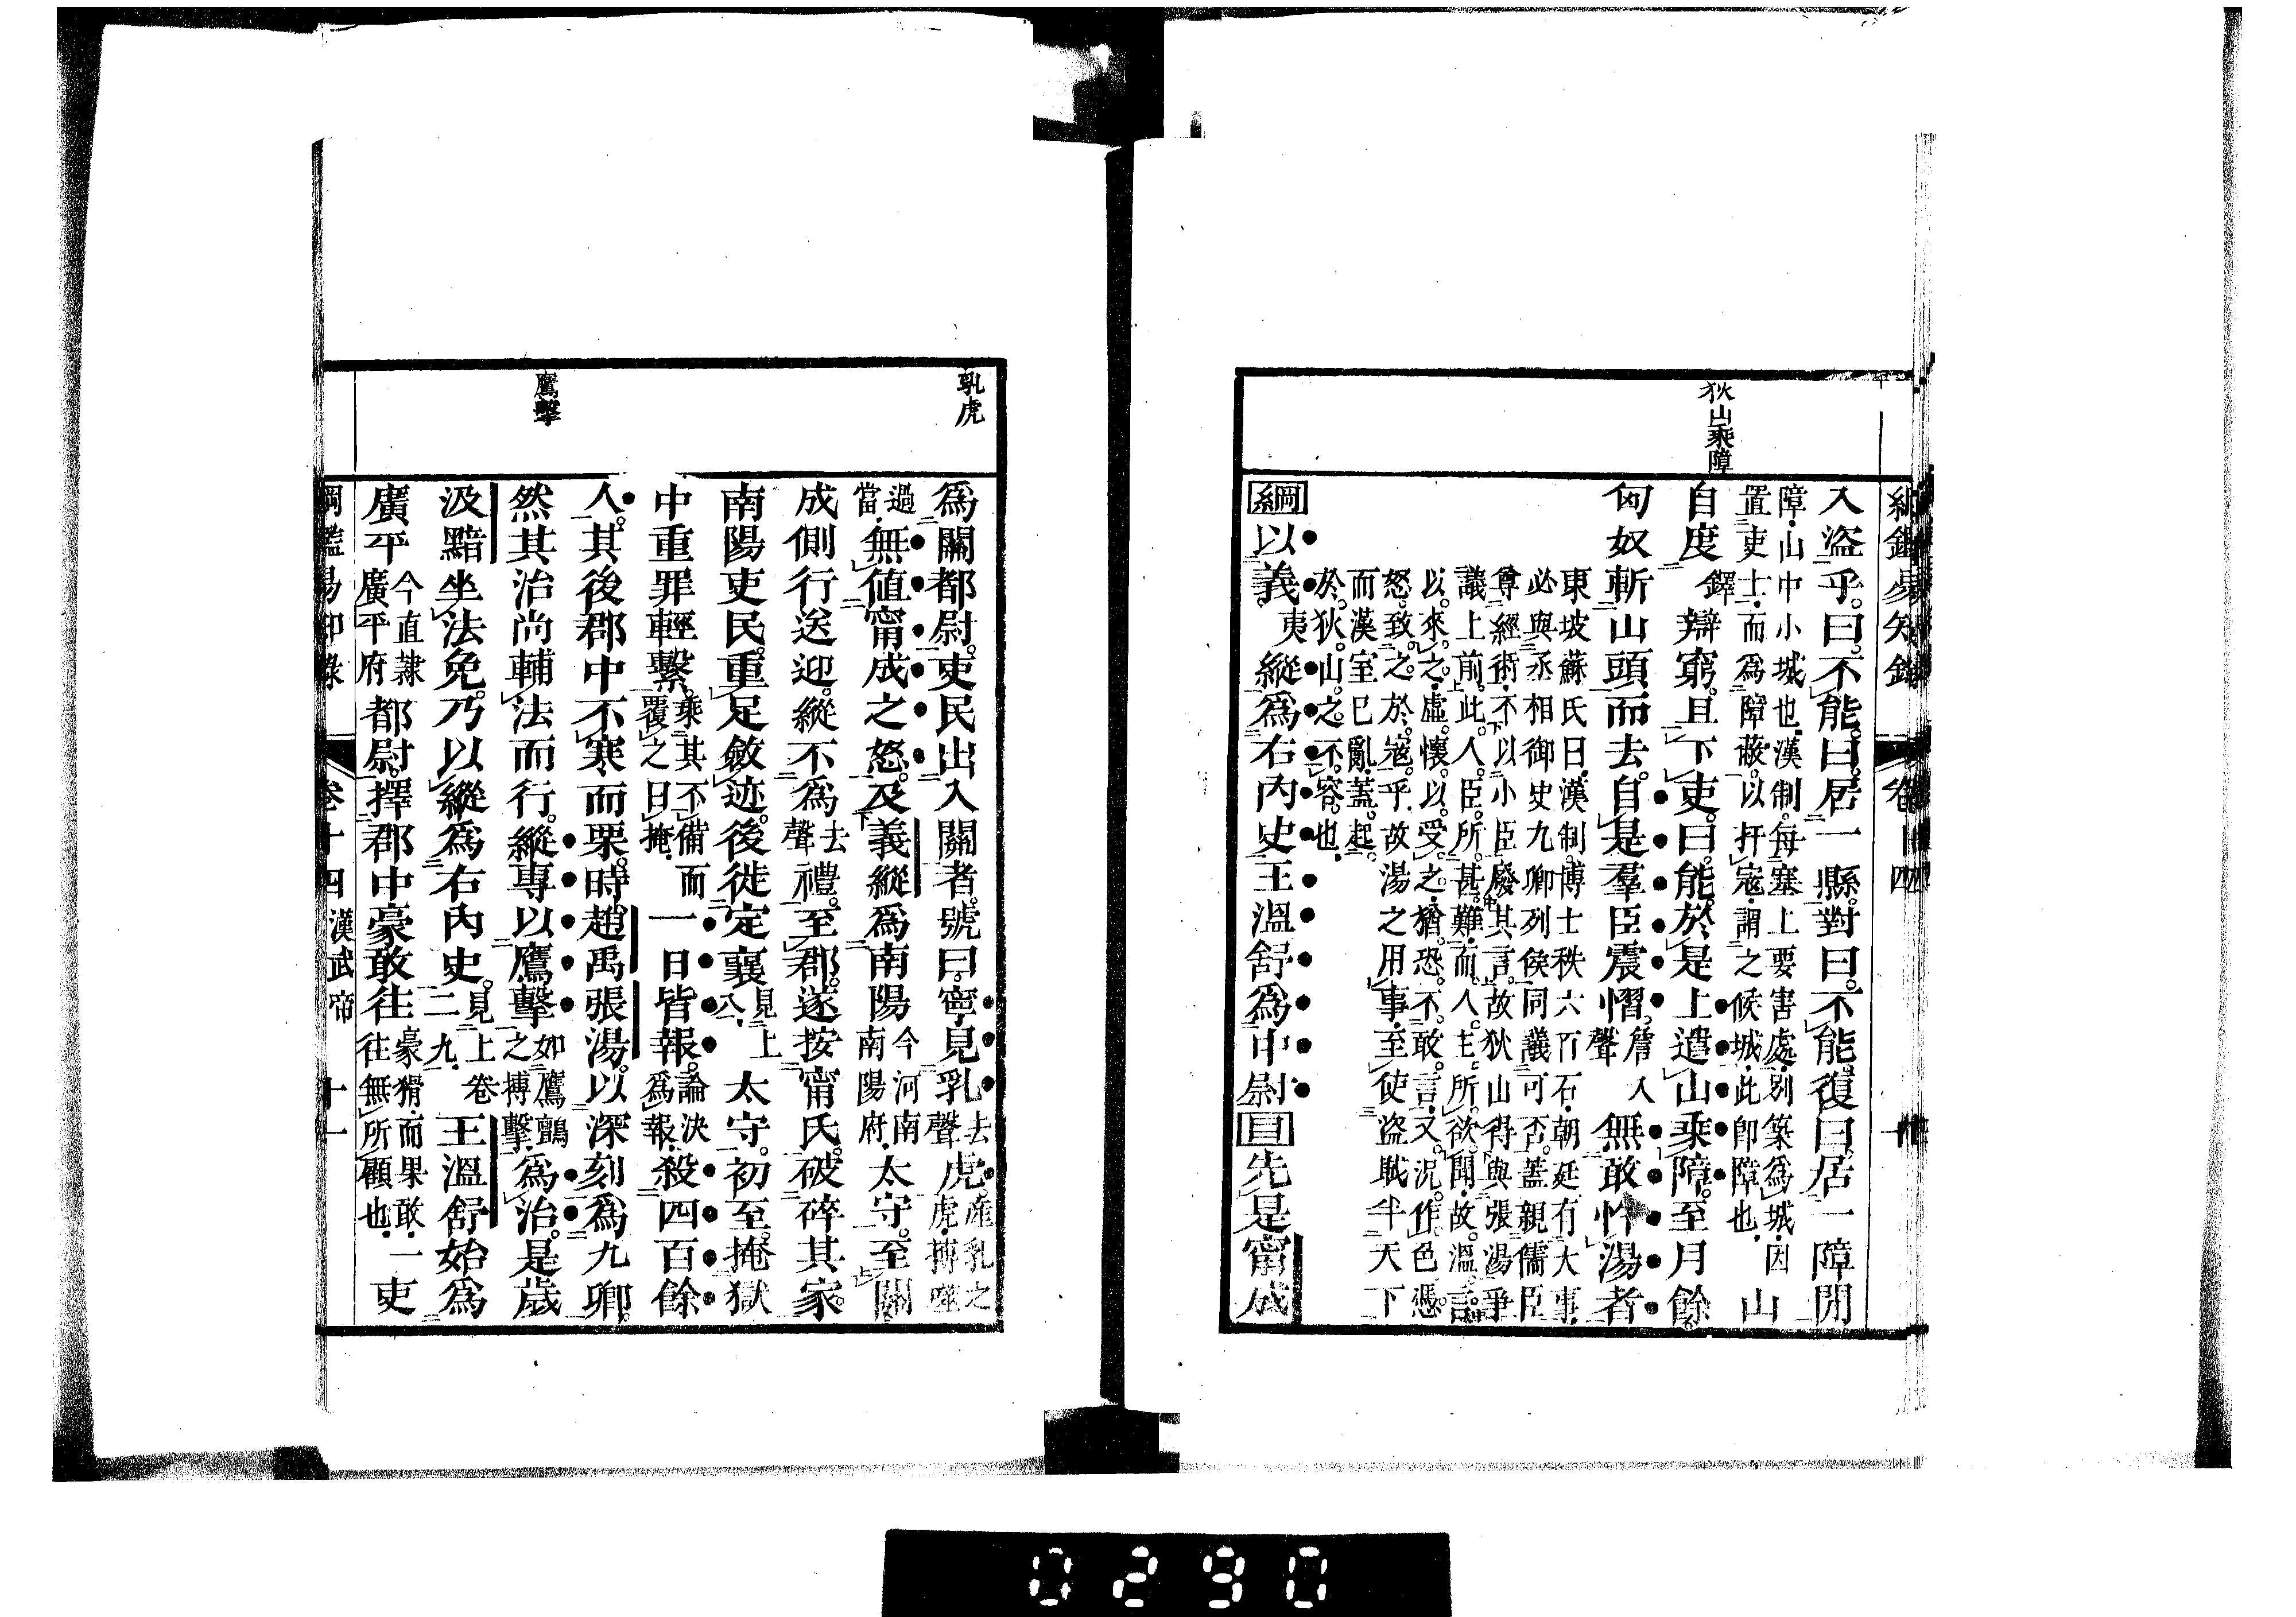 綱鑑易知錄 卷十四
狄山乘障
入盜乎。曰。不能。曰。居一縣。對曰。不能。復曰。居一障閒
障。山中小城也。漢制。每塞上要害處。別築爲城。因
置吏士。而爲障蔽。以扞寇。謂之候城。此卽障也。山
自度鐸辯窮。且下吏。曰。能。於是上遣山乘障。至月餘。
匈奴斬山頭而去。自是羣臣震慴。詹入聲無敢忤湯者
東坡蘇氏曰。漢制。博士秩六百石。朝廷有大事。
必與丞相御史九卿列侯同議可否。蓋親儒臣
尊經術。不以小臣廢其言。故狄山得與張湯爭
議上前。此人臣所甚難。而人主所欲聞。故溫言
以來之。虛懷以受之。猶恐不敢言。又況作色憑
怒。致之於寇乎。故湯之用事。至使盜賊半天下
而漢室已亂。蓋起
於狄山之不容也。
綱以義夷縱爲右內史王溫舒爲中尉目先是甯成
乳虎
鷹擊
爲關都尉。吏民出入關者。號曰。寧見乳去聲虎。產乳之虎。搏噬
過當。無値甯成之怒。及義縱爲南陽今河南南陽府。太守。至關
成側行送迎。縱不爲去聲禮。至郡。遂按甯氏。破碎其家。
南陽吏民。重足斂迹。後徙定襄見上八。太守。初至。掩獄
中重罪輕繫。乘其不備而覆之曰掩。一日皆報。論決爲報。殺四百餘
人。其後郡中不寒而栗。時趙禹張湯。以深刻爲九卿。
然其治尚輔法而行。縱專以鷹擊如鷹鸇之搏擊。爲治。是歲
汲黯坐法免。乃以縱爲右內史。見上卷二九。王溫舒始爲
廣平今直隸廣平府都尉。擇郡中豪敢往豪猾而果敢。往無所顧也。一吏
綱鑑易知錄 卷十四 漢武帝 十一
0290